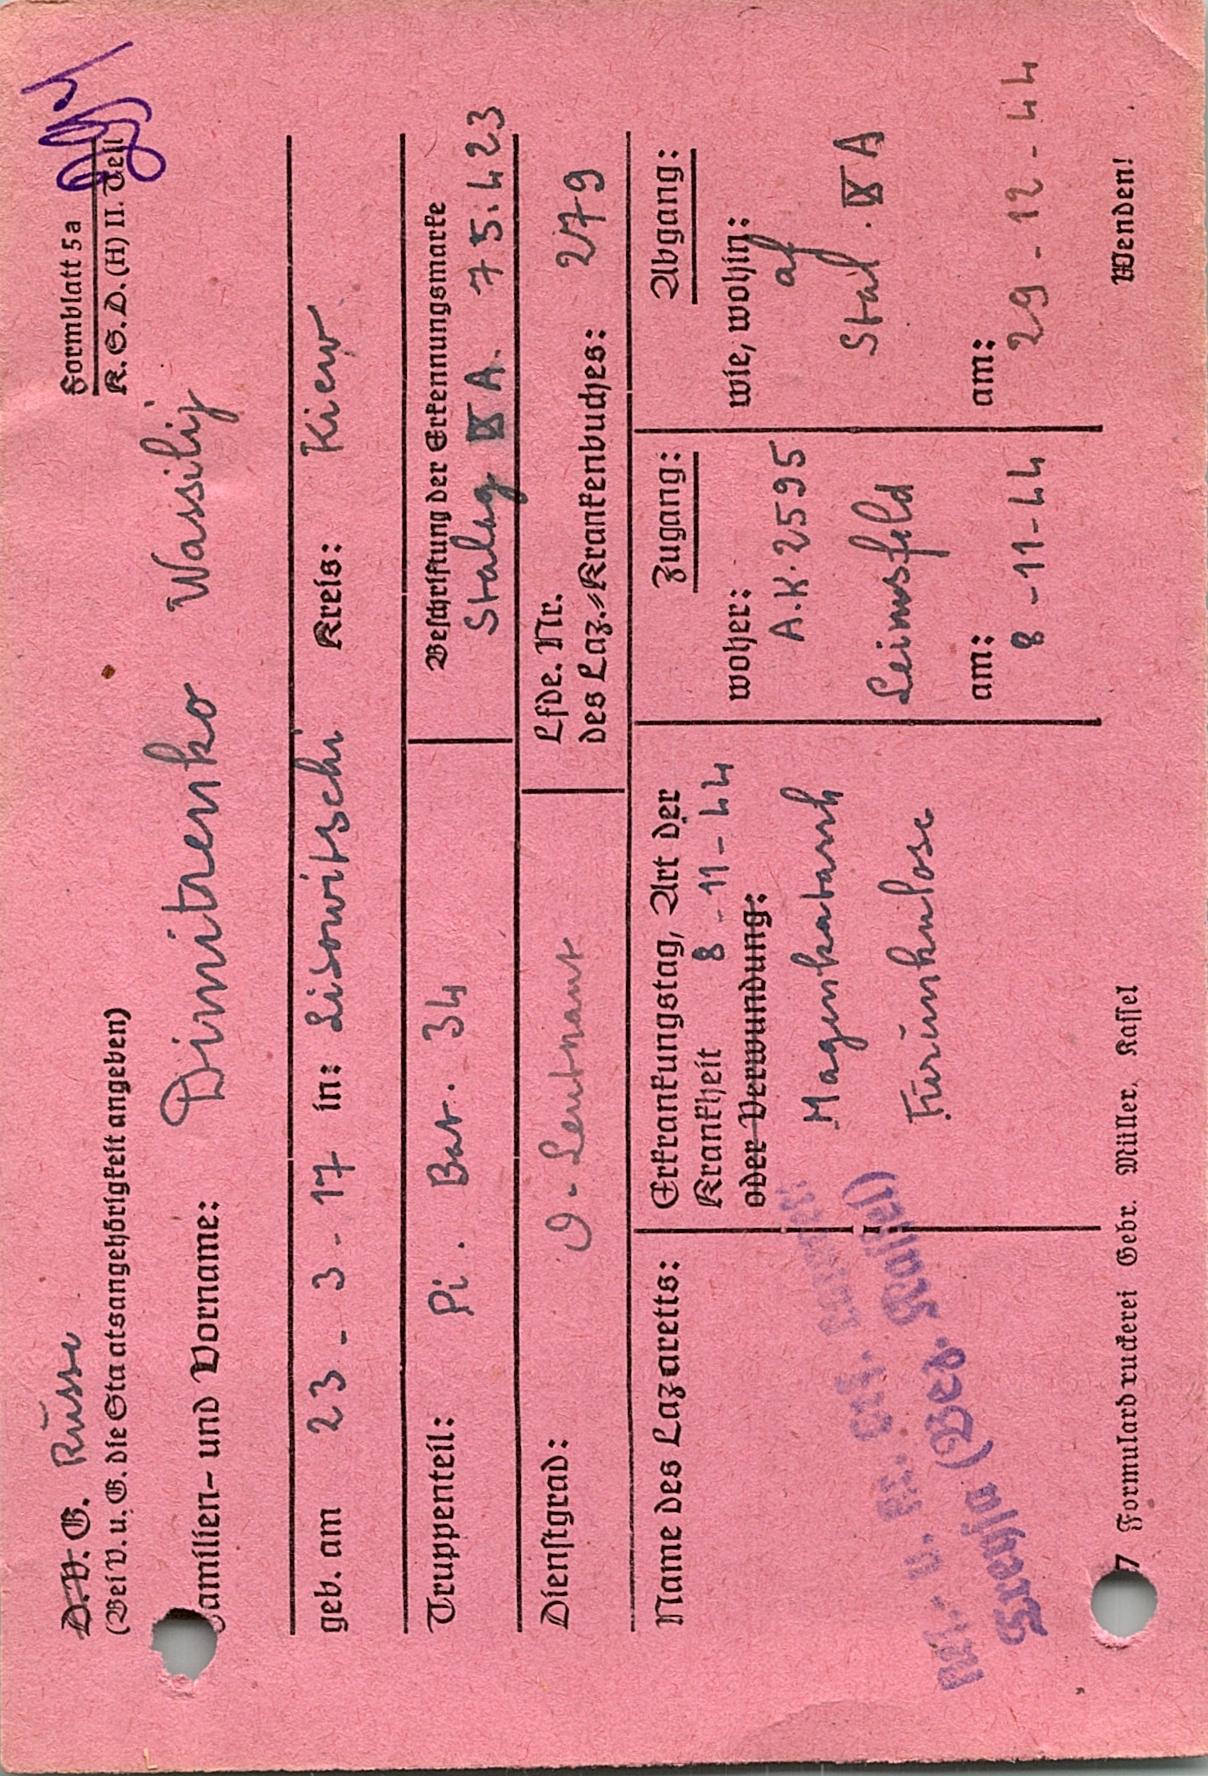 D. V. G. Russe
Formblatt 5a
(Bei V. u. G. die Staatsangehörigkeit angeben)
K. S. D. (H) II. Teil
Familien- und Vorname: Dimitrenko Wassilij
geb. am 23-3-17 in: Lisowitschi Kreis: Kiew
Truppenteil: Pi. Bat. 34
Beschriftung der Erkennungsmarke
Stalag IX A. 75423
Dienstgrad: O-Leutnant
Lfde. Nr.
des Laz.-Krankenbuches: 279
Name des Lazaretts:
Treysa (Bez. Kassel)
Erkrankungstag, Art der
Krankheit 8-11-44
oder Verwundung:
Magenkatarrh
Furunkulose
Zugang:
woher:
A.K. 2595
Leimsfeld
am:
8-11-44
Abgang:
wie, wohin:
af
Stal. IX A
am:
29-12-44
7 Formulardruckerei Gebr. Müller, Kassel
Wenden!